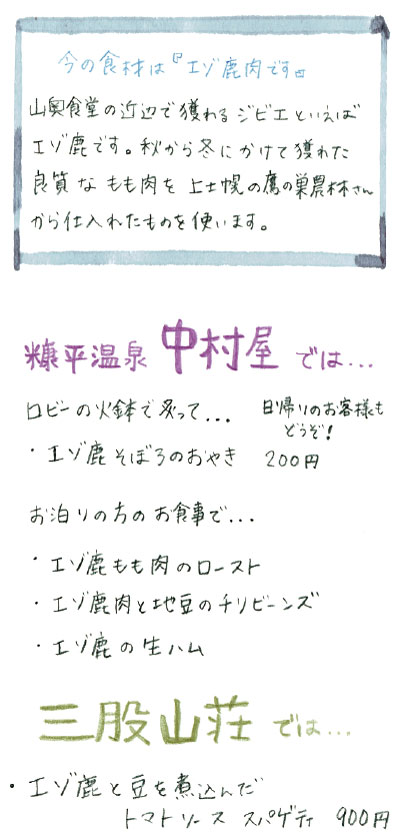 今の食材は『エゾ鹿肉です』
山奥食堂の近辺で獲れるジビエといえば
エゾ鹿です。秋から冬にかけて獲れた
良質なもも肉を上士幌の鷹の巣農林さん
から仕入れたものを使います。
糠平温泉 中村屋 では...
ロビーの火鉢で炙って... 日帰りのお客様も
どうぞ!
・エゾ鹿そぼろのおやき 200円
お泊りの方のお食事で...
・エゾ鹿もも肉のロースト
・エゾ鹿肉と地豆のチリビーンズ
・エゾ鹿の生ハム
三股山荘 では...
・エゾ鹿と豆を煮込んだ
トマトソーススパゲティ 900円